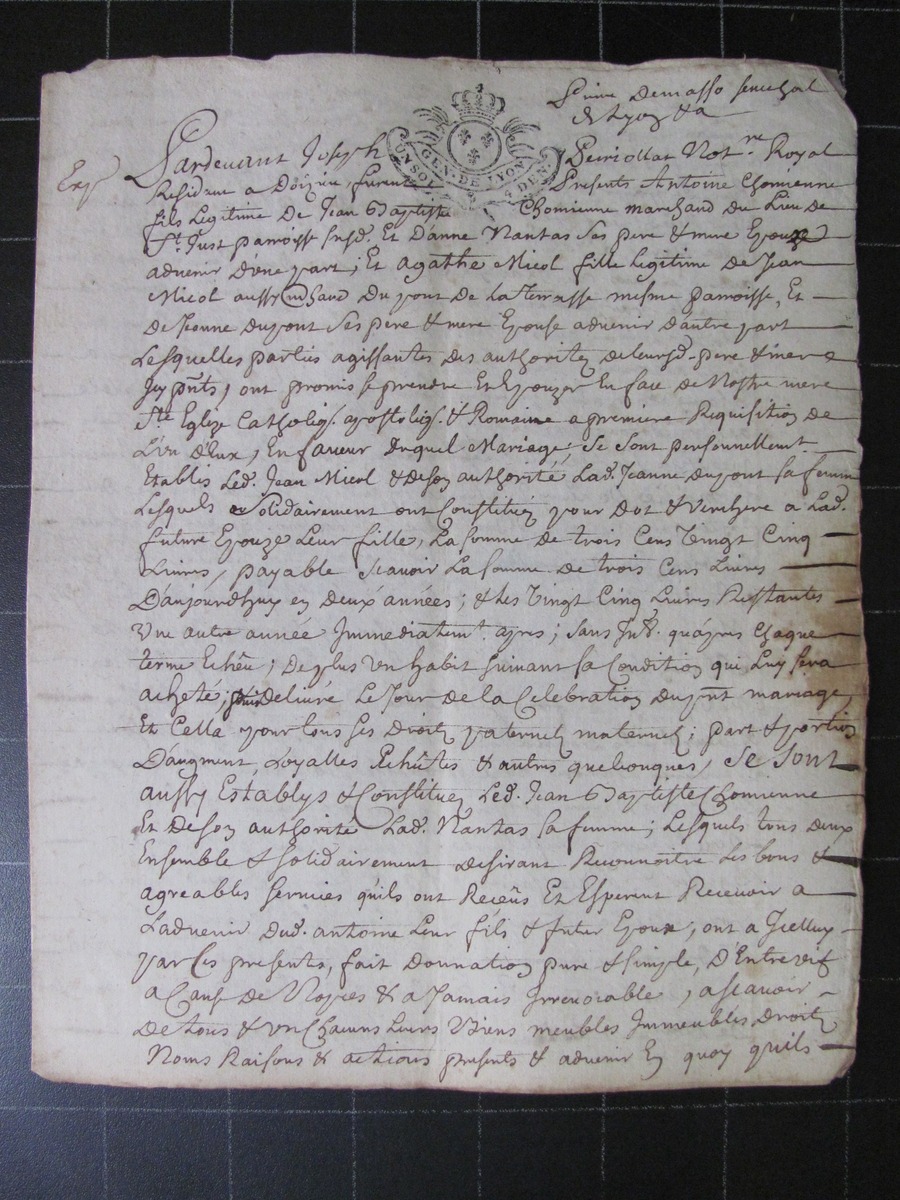 demasso senechal
de Lyon &a
Pardevant Joseph Peuriollat Not.re Royal
Exp.
GEN. DE LYON
UN SOL
DEN
Residant a Doizieu, furent Presents Antoine Chomienne
fils Legitime De Jean Baptiste Chomienne marchand du Lieu de
St. Just parroisse susd. Et D'anne Nantas ses pere & mere Epoux
advenir d'une part; Et agathe Nicol fille legitime de Jean
Nicol aussy m.chand du pont de la terrasse mesme parroisse, Et
de Jeanne dupont ses pere & mere Epouse advenir d'autre part
Lesquelles parties agissantes des authoritez de leursd. pere & mere
Icy pnts, ont promis se prendre Et Epouzer En face de Nostre mere
Ste. Eglize Catholiq. apostoliq. & Romaine a premiere Requisition de
L'un d'Eux, En faveur duquel Mariage, se sont personnellemt.
Etablis Led. Jean Nicol & de son authorité Lad. Jeanne dupont sa femme
Lesquels solidairement ont Constitué pour Dot & Verchere a Lad.
future Epouze Leur fille, La somme de trois Cens Vingt Cinq
Livres, payable scavoir La somme de trois Cens Livres
D'aujourdhuy en deux années; & Les Vingt Cinq Livres Restantes
Une autre année Immediatemt. apres; sans Int. qu'apres Chaque
terme Echeu; de plus un habit suivant sa Condition qui Luy sera
acheté, Delivré Le Jour de la Celebration du pnt mariage
Et Cella pour tous ses Droitz paternelz maternelz; part & portion
D'augment, Loyalles Echûtes & autres quelconques, Se Sont
aussy Establys & Constituez Led. Jean Baptiste Chomienne
Et De son authorité Lad. Nantas sa femme; Lesquels tous deux
Ensemble & solidairement desirant Reconnoitre Les bons &
agreables services qu'ils ont Receus Et Esperent Recevoir a
L'advenir dud. antoine Leur fils & futur Epoux; ont a Icelluy
par Ces presents, fait Donnation pure & simple, D'Entre vif
a Cause de Nopces & a Jamais Irrevocable, a scavoir
De tous & un Chacuns Leurs Biens meubles Immeubles Droitz
Noms Raisons & actions presents & advenir En quoy qu'ils